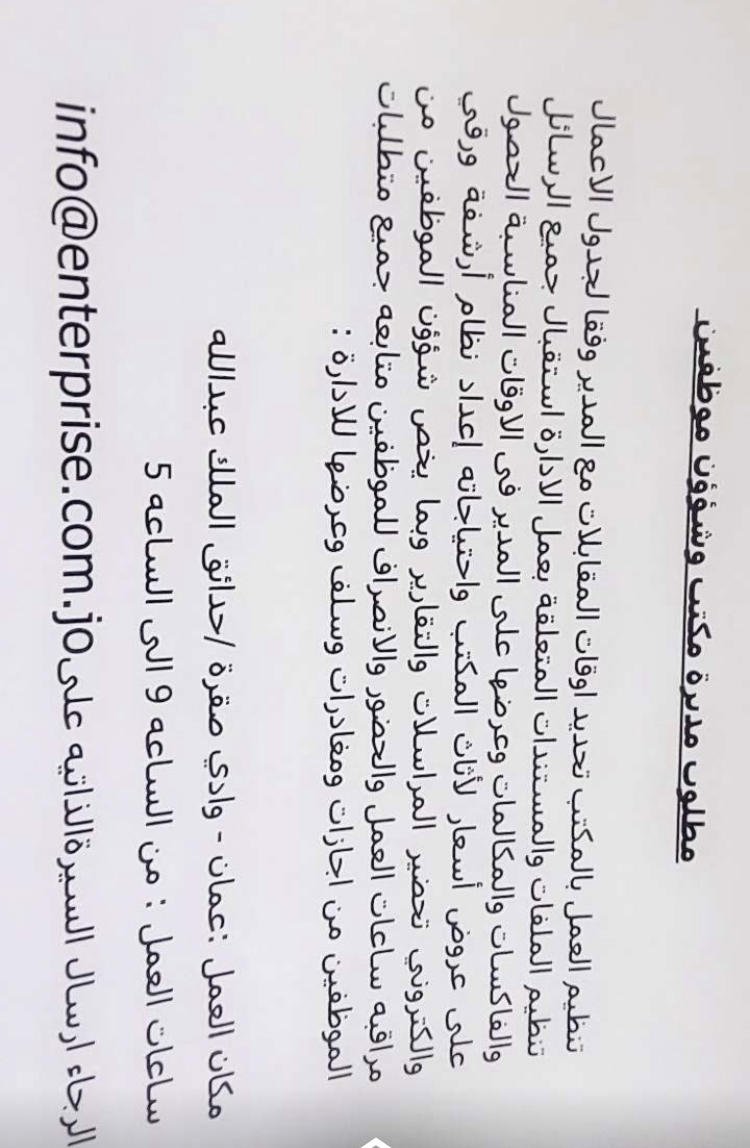 مطلوب مديرة مكتب وشؤون موظفين
تنظيم العمل بالمكتب تحديد اوقات المقابلات مع المدير وفقا لجدول الاعمال
تنظيم الملفات والمستندات المتعلقة بعمل الادارة استقبال جميع الرسائل
والفاكسات والمكالمات وعرضها على المدير في الاوقات المناسبة الحصول
على عروض أسعار لأثاث المكتب واحتياجاته إعداد نظام أرشفة ورقي
والكتروني تحضير المراسلات والتقارير وبما يخص شؤؤن الموظفين من
مراقبه ساعات العمل والحضور والانصراف للموظفين متابعه جميع متطلبات
الموظفين من اجازات ومغادرات وسلف وعرضها للادارة :
مكان العمل :عمان - وادي صقرة /حدائق الملك عبدالله
ساعات العمل : من الساعه 9 الى الساعه 5
الرجاء ارسال السيرة الذاتيه على info@enterprise.com.jo